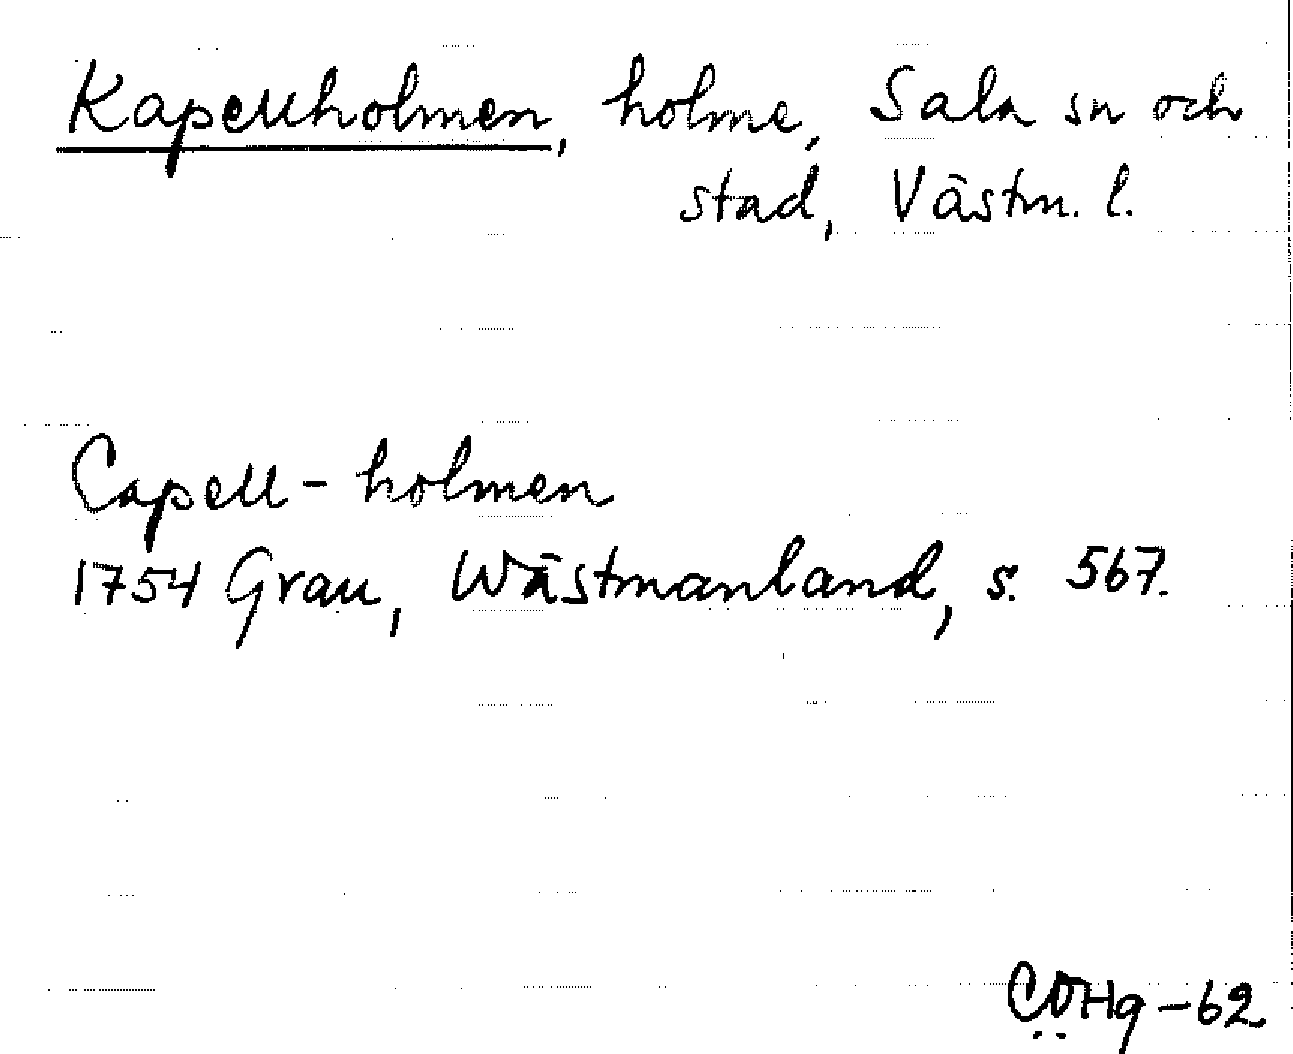 Kapellholmen, holme, Sala sn och
stad, Västm. l.
Capell-holmen
1754 Grau, Wästmanland, s. 567.
CÖHg-62